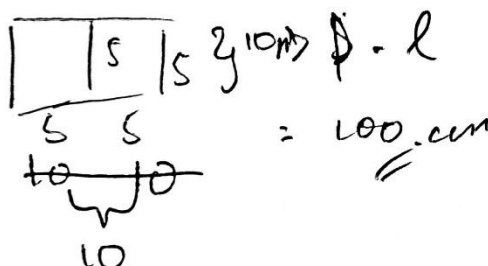 5 5 10 p . l
5 5 = 100 . cm
10 10
10